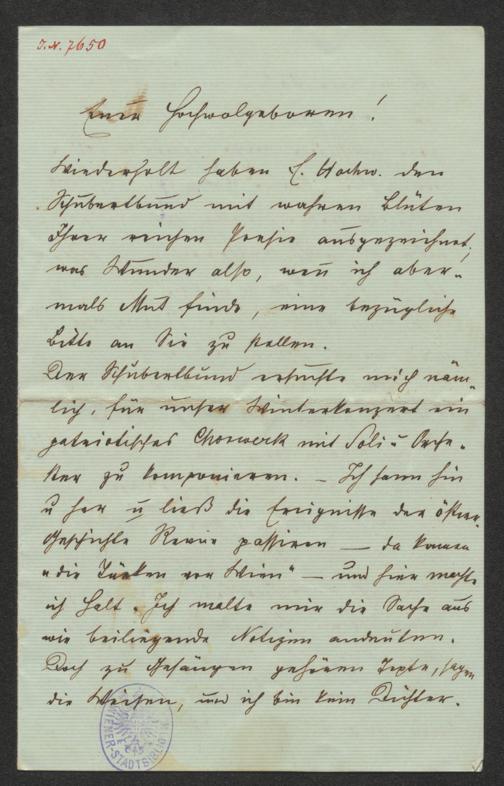 I.N. 7650
Euer Hochwolgeboren!
Wiederholt haben E. Hochw. den
Schubertbund mit wahren Blüten
Ihrer reichen Poesie ausgezeichnet,
was Wunder also, weñ ich aber-
mals Mut finde, eine bezügliche
Bitte an Sie zu stellen.
Der Schubertbund ersuchte mich näm-
lich, für unser Winterkonzert ein
patriotisches Chorwerk mit Soli u Orche-
ster zu komponieren. – Ich sann hin
u her u ließ die Ereignisse der österr.
Geschichte Revue passiren – da kamen
"die Türken vor Wien" – und hier machte
ich Halt. Ich malte mir die Sache aus
wie beiliegende Notizen andeuten.
Doch zu Gesängen gehören Texte, sagen
die Weisen, und ich bin kein Dichter.
WIENER-STADTBIBLIOTHEK